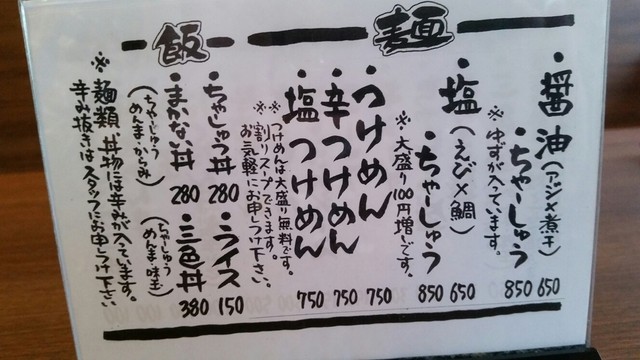 麺
・醤油(アジ×煮干) 650
・ちゃーしゅう 850
※ゆずが入っています。
・塩(えび×鯛) 650
・ちゃーしゅう 850
※大盛り100円増しです。
・つけめん 750
・辛つけめん 750
・塩つけめん 750
※つけめんは大盛り無料です。
※割りスープできます。
お気軽にお申しつけ下さい。
飯
・ちゃしゅう丼 280
・ライス 150
・まかない丼 280
(ちゃーしゅう
めんま・からみ)
・三色丼 380
(ちゃーしゅう
めんま・味玉)
※麺類、丼物には辛みが入っています。
辛み抜きはスタッフにお申しつけ下さい